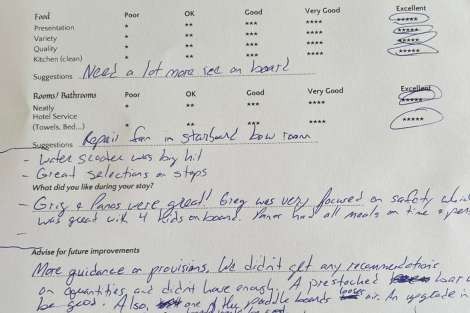 Food Poor OK Good Very Good Excellent
Presentation * ** *** **** *****
Variety * ** *** **** *****
Quality * ** *** **** *****
Kitchen (clean) * ** *** **** *****
Suggestions Need a lot more ice on board
Rooms/ Bathrooms Poor OK Good Very Good Excellent
Neatly * ** *** **** *****
Hotel Service
(Towels, Bed...) * ** *** **** *****
Suggestions Repair fan in starboard bow room
- Water scooter was big hit
- Great selections on stops
What did you like during your stay?
- Greg & Panos were great! Greg was very focused on safety which
was great with 4 kids on board. Panos had all meals on time &
Advise for future improvements
More guidance on provisions. We didn't get any recommendations
on quantities, and didn't have enough. A prestocked
be good. Also, one of the paddle boards looses air. An upgrade in